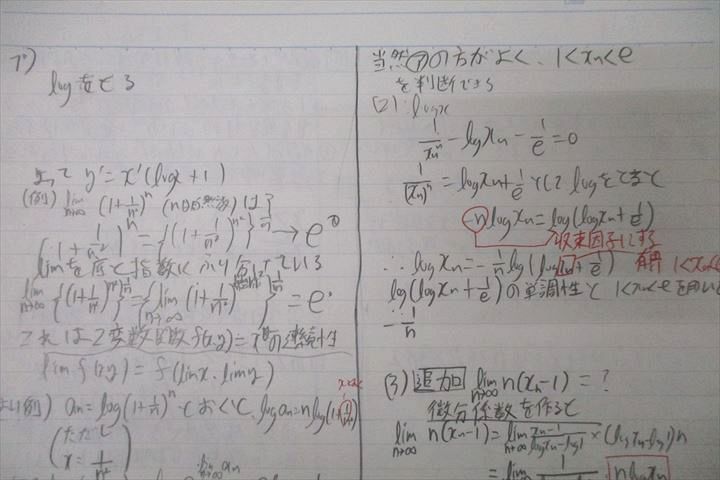 log をとる
よって y' = x^x (log x + 1)
(例) lim_{n→∞} (1 + 1/n²)^n (nは自然数) は?
(1 + 1/n²)^n = {(1 + 1/n²)^{n²}}^{1/n} → e⁰
lim を底と指数に ふり分けている
lim_{n→∞} {(1 + 1/n²)^{n²}}^{1/n} = {lim_{n→∞} (1 + 1/n²)^{n²}}^{1/n} = e⁰
これは2変数関数 f(x,y) = x^y の連続性
lim f(x,y) = f(lim x, lim y)
例) a_n = log(1 + 1/n²)^n とおくと、log a_n = n log(1 + 1/n²)
(ただし
x = 1/n²)
lim_{n→∞} a_n
当然⑦の方がよく、1 < x_n < e
を判断できる
(2) log x
1/x_n^n - log x_n - 1/e = 0
1/(x_n)^n = log x_n + 1/e として log をとると
-n log x_n = log(log x_n + 1/e)
収束因子にする
∴ log x_n = -1/n log(log x_n + 1/e) 有界 1 < x_n <
log(log x_n + 1/e) の単調性と 1 < x_n < e を用い
- 1/n
(3) 追加 lim_{n→∞} n(x_n - 1) = ?
微分係数を作ると
lim_{n→∞} n(x_n - 1) = lim_{n→∞} (x_n - 1)/(log x_n - log 1) × (log x_n - log 1) n
= lim_{n→∞} 1/ · n log x_n